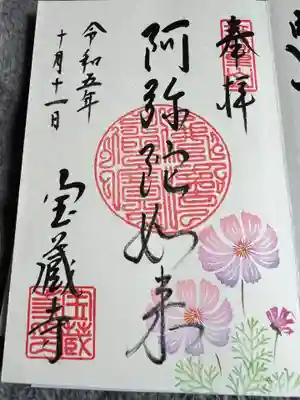 奉拝
阿弥陀如来
宝蔵寺
令和五年
十月十一日